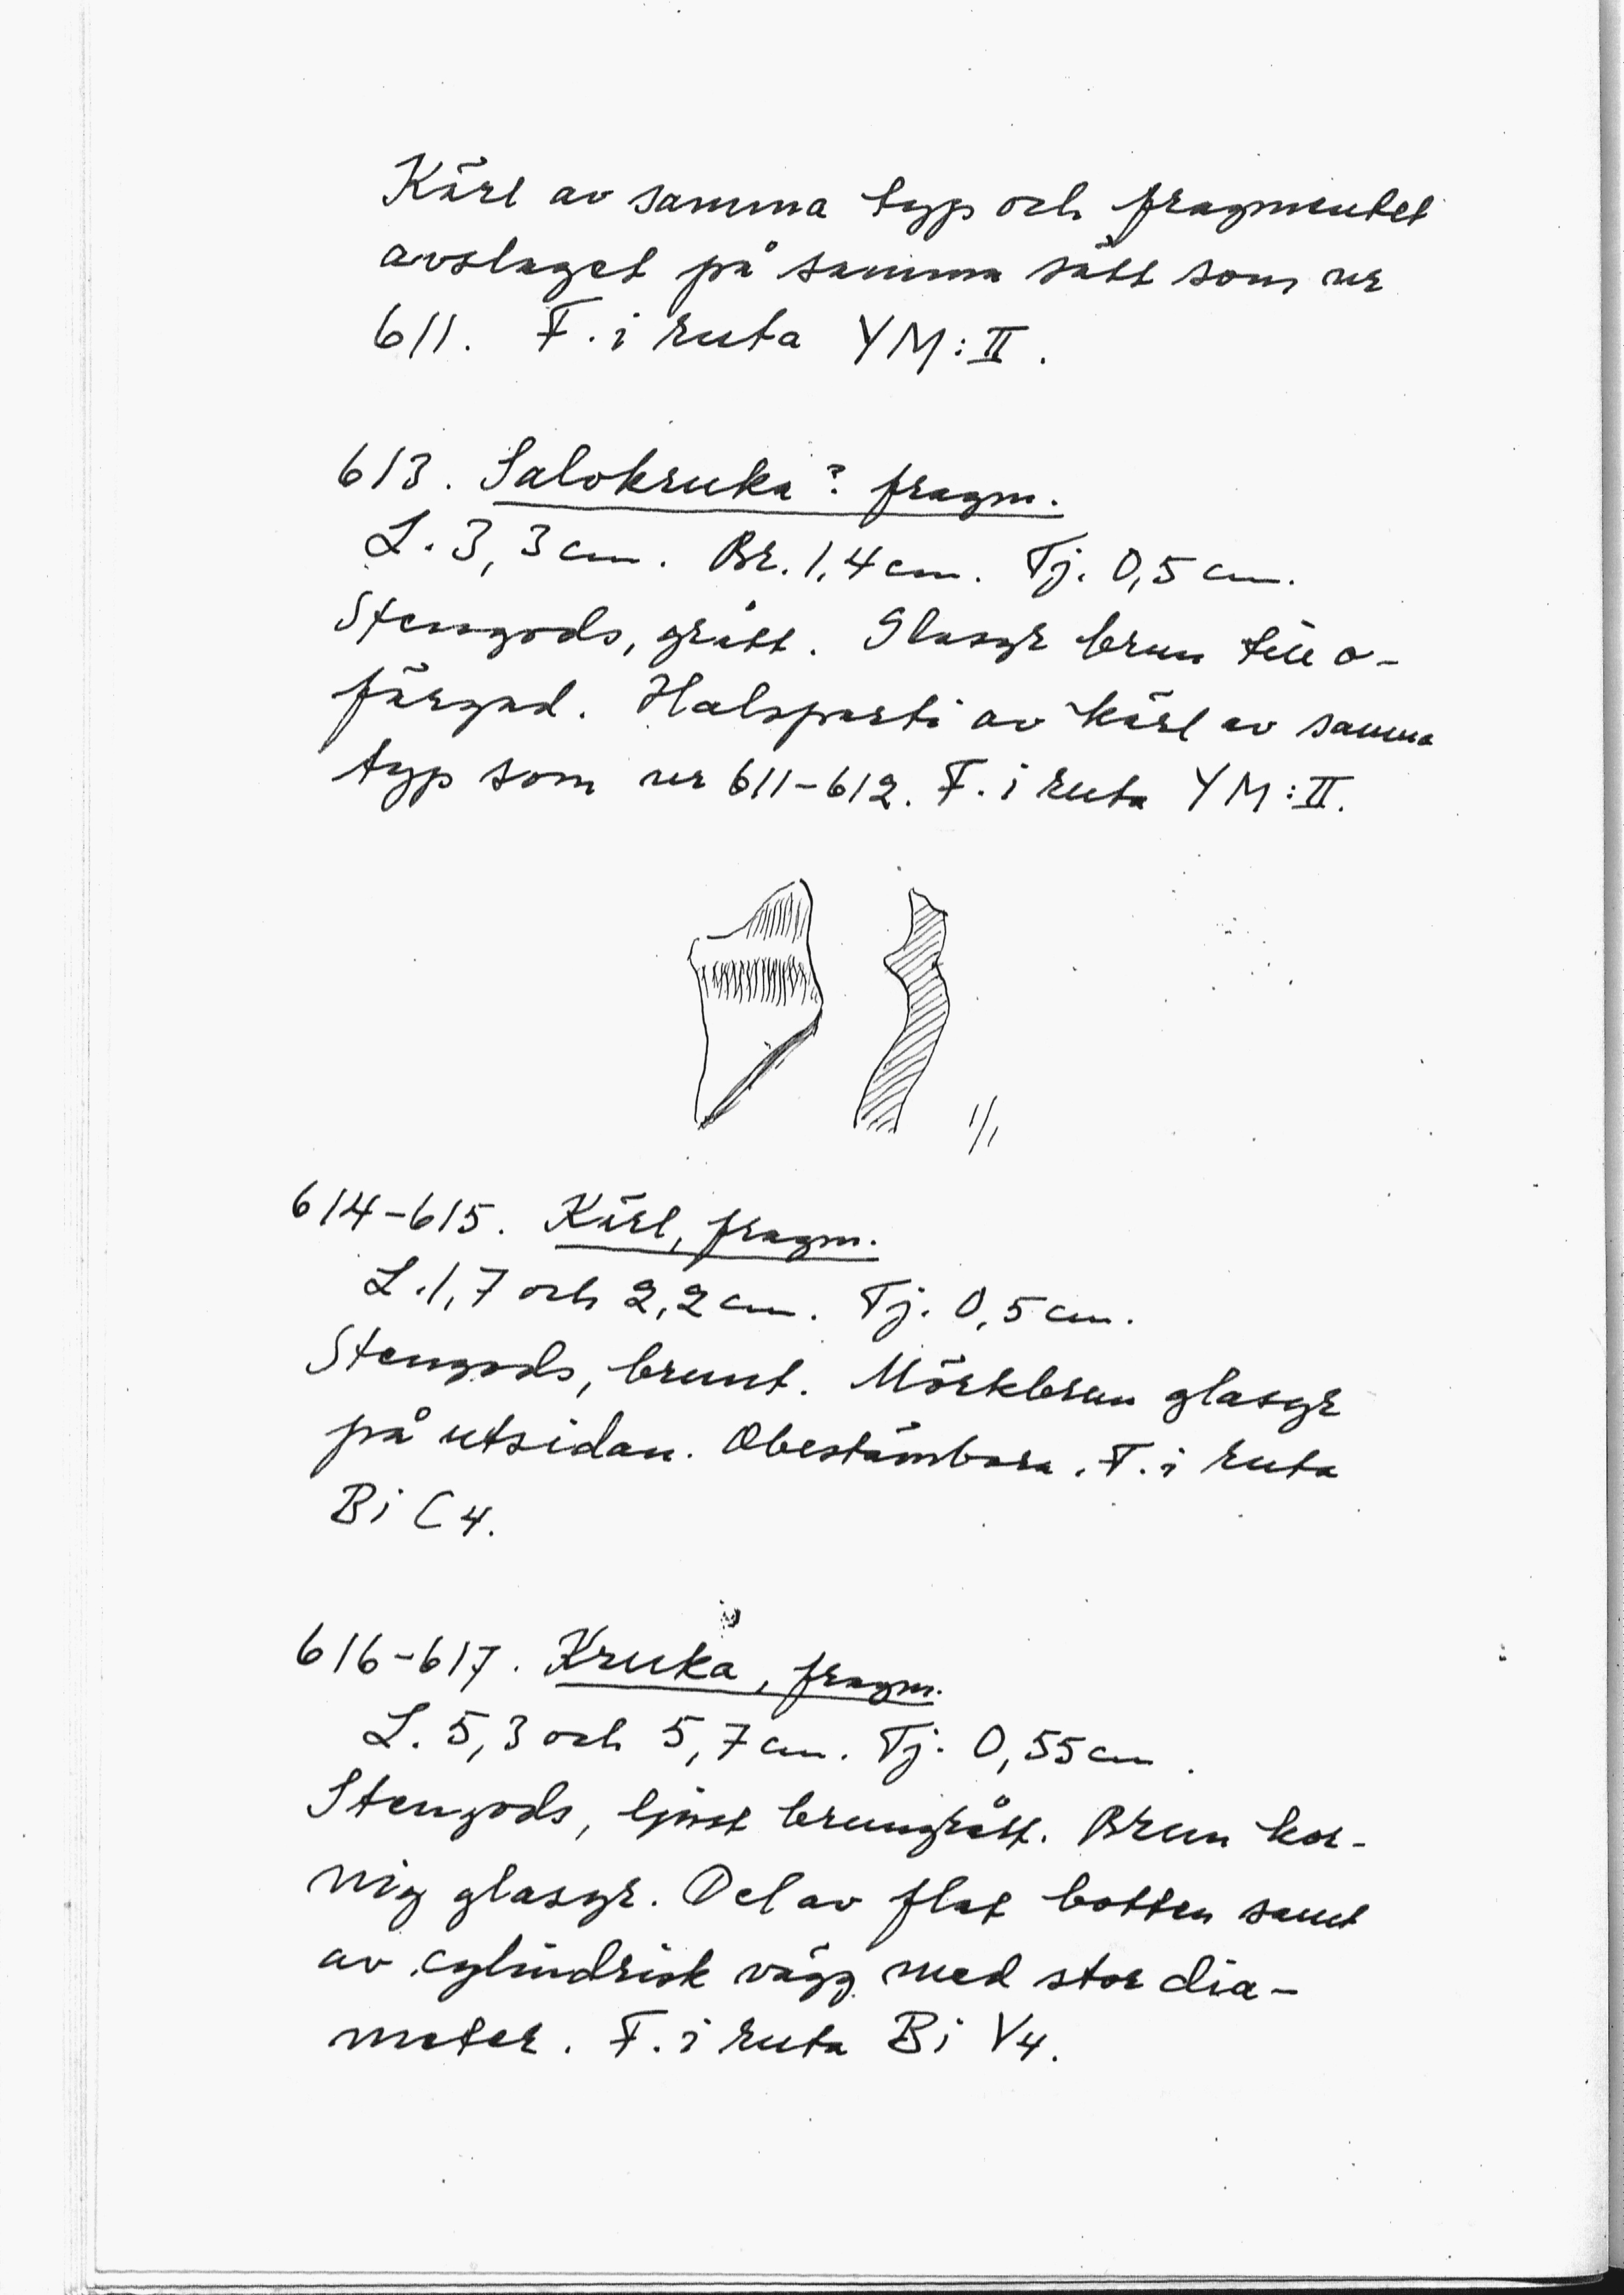 Kärl av samma typ och fragmentet
avslaget på samma sätt som nr
611. F. i ruta YM:II.
613. Salvkruka? fragm.
L. 3,3 cm. Br. 1,4 cm. Tj. 0,5 cm.
Stengods, grått. Glasyr brun till o-
färgad. Halsparti av kärl av samma
typ som nr 611-612. F. i ruta YM:II.
1/1
614-615. Kärl, fragm.
L. 1,7 och 2,2 cm. Tj. 0,5 cm.
Stengods, brunt. Mörkbrun glasyr
på utsidan. Obestämbara. F. i ruta
Bi C4.
616-617. Kruka, fragm.
L. 5,3 och 5,7 cm. Tj. 0,55 cm.
Stengods, ljust brungrått. Brun kor-
nig glasyr. Del av flat botten samt
av cylindrisk vägg med stor dia-
meter. F. i ruta Bi V4.